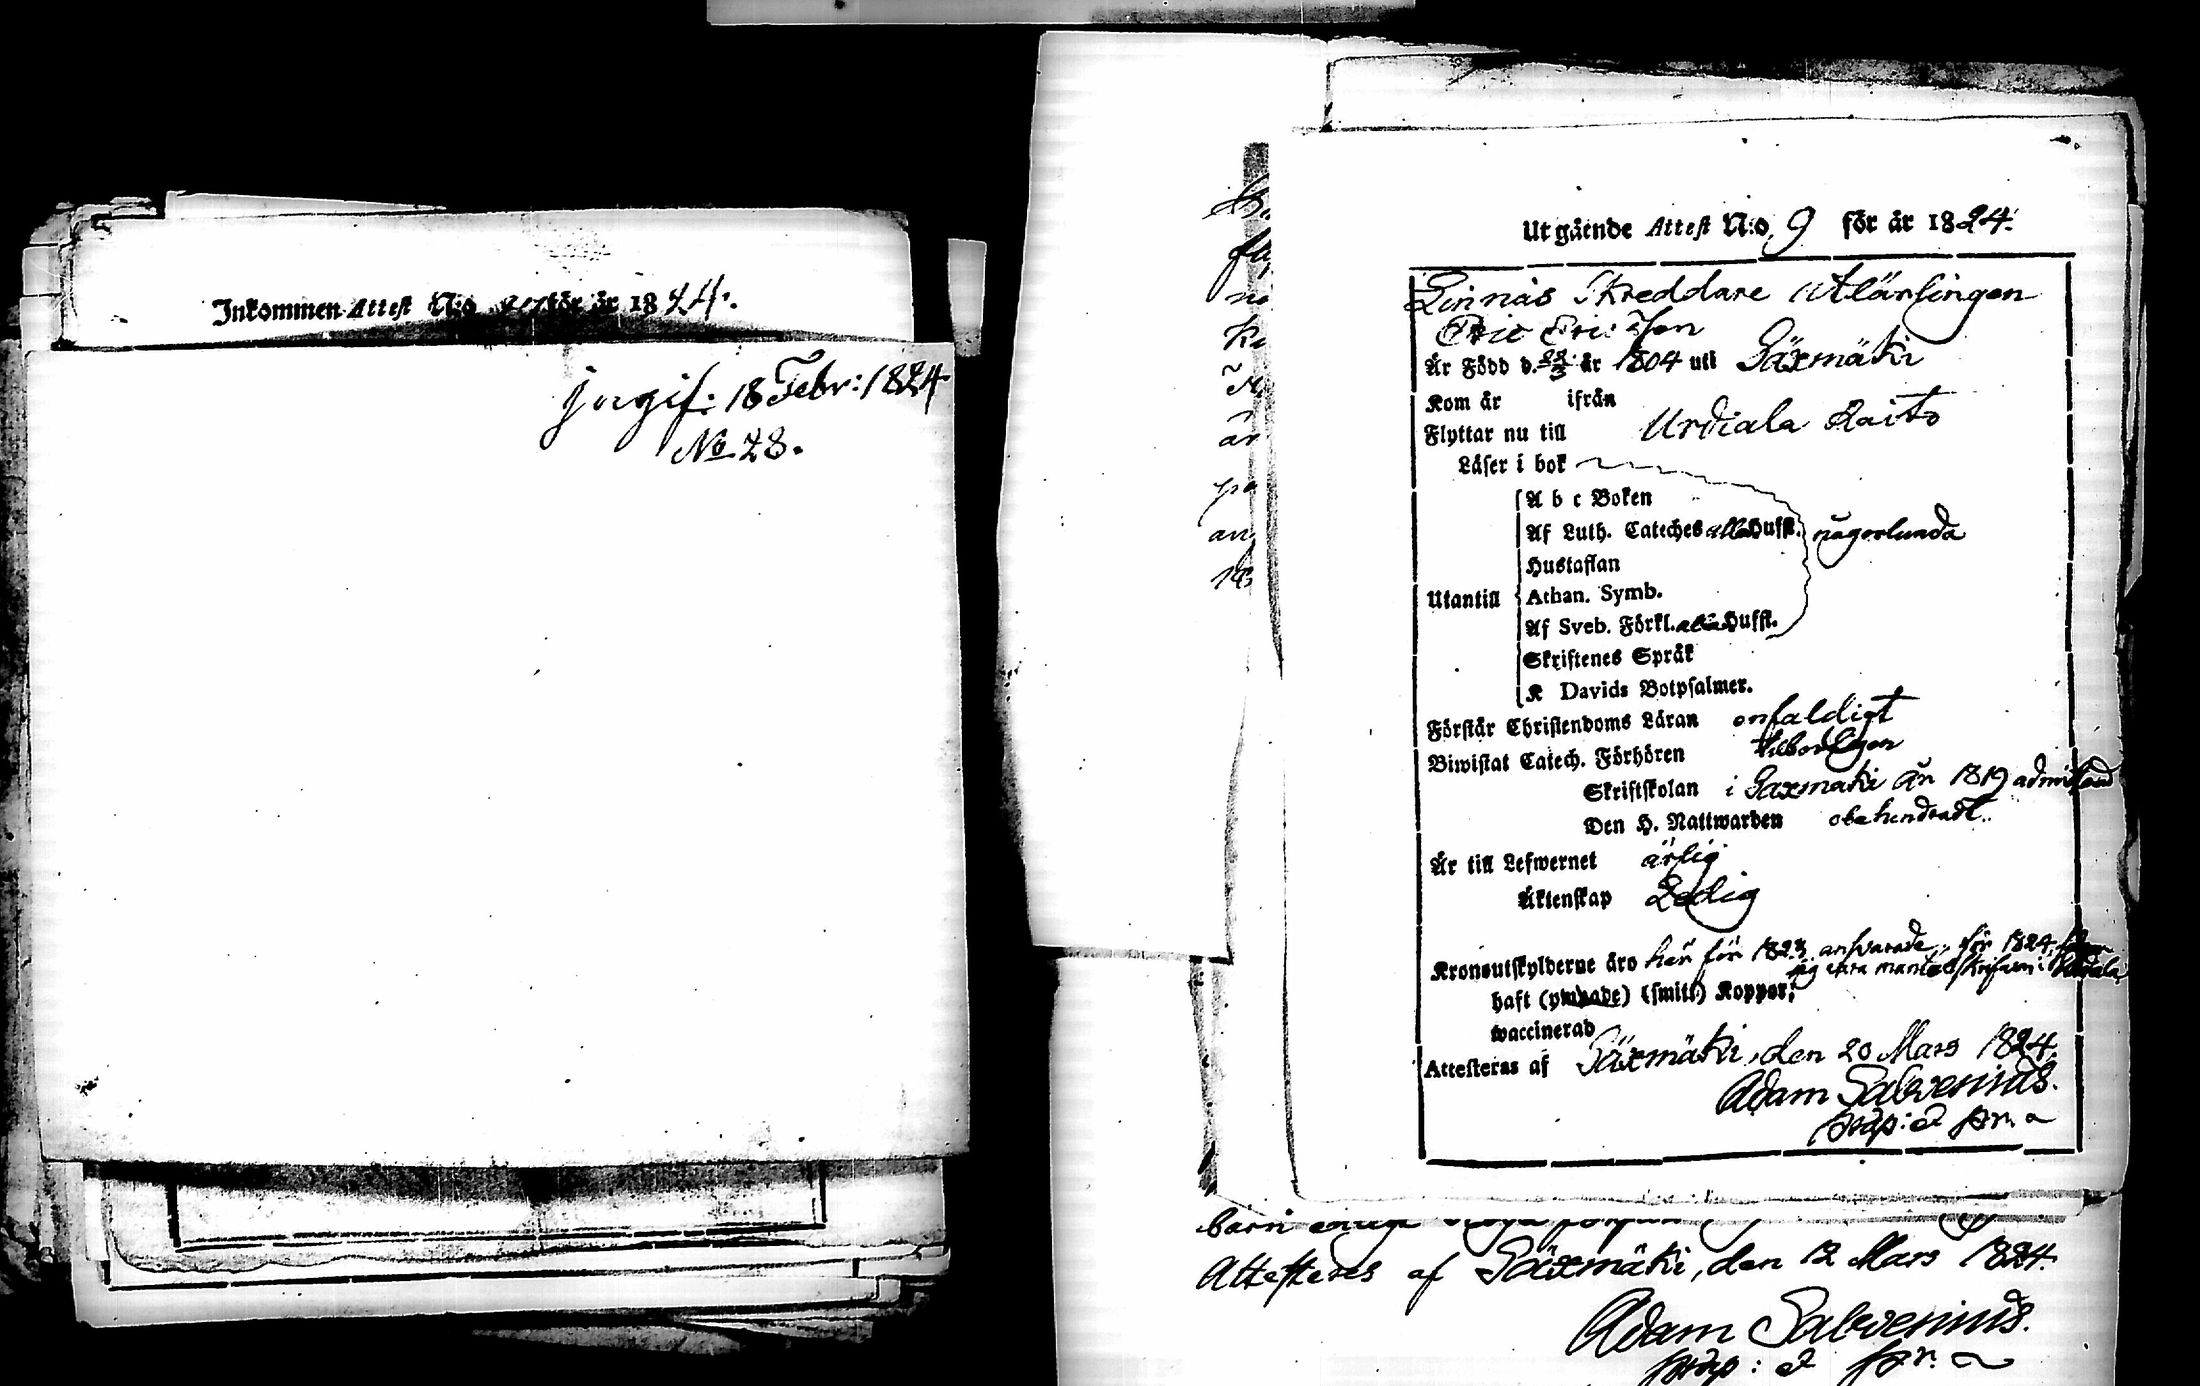 Inkommen Attest N:o för år 1824.
ingif: 18 Febr: 1824
No 28.
Utgående Attest N:o 9 för år 1824.
Linnäs Skreddare Lärlingen
Eric Ericsson
Är Född d. 22/3 år 1804 uti Säxmäki
Kom år ifrån
Flyttar nu till Urdiala Laito
Läser i bok
A b c Boken
Af Luth. Cateches alla Hufst. någorlunda
Hustaflan
Utantill Athan. Symb.
Af Sveb. Förkl. alla Hufst.
Skriftenes Språk
K Davids Botpsalmer.
Förstår Christendoms Läran enfaldigt
Biwistat Catech. Förhören behörigen
Skriftskolan i Saxmäki år 1819 admitterad
Den H. Nattwarden obehindradt.
Är till Lefwernet ärlig
Äktenskap Ledig
Kronoutskylderne äro här för 1823 ansvarade, för 1824
sig vara mantalskrifven i Urdiala
haft (ympade) (smitt.) Koppor;
waccinerad
Attesteras af Säxmäki, den 20 Mars 1824.
Adam Salvenius.
prap: & pr.
barn
Attesteres af Säxmäki, den 12 Mars 1824.
Adam Salvenius.
prap: & pr.